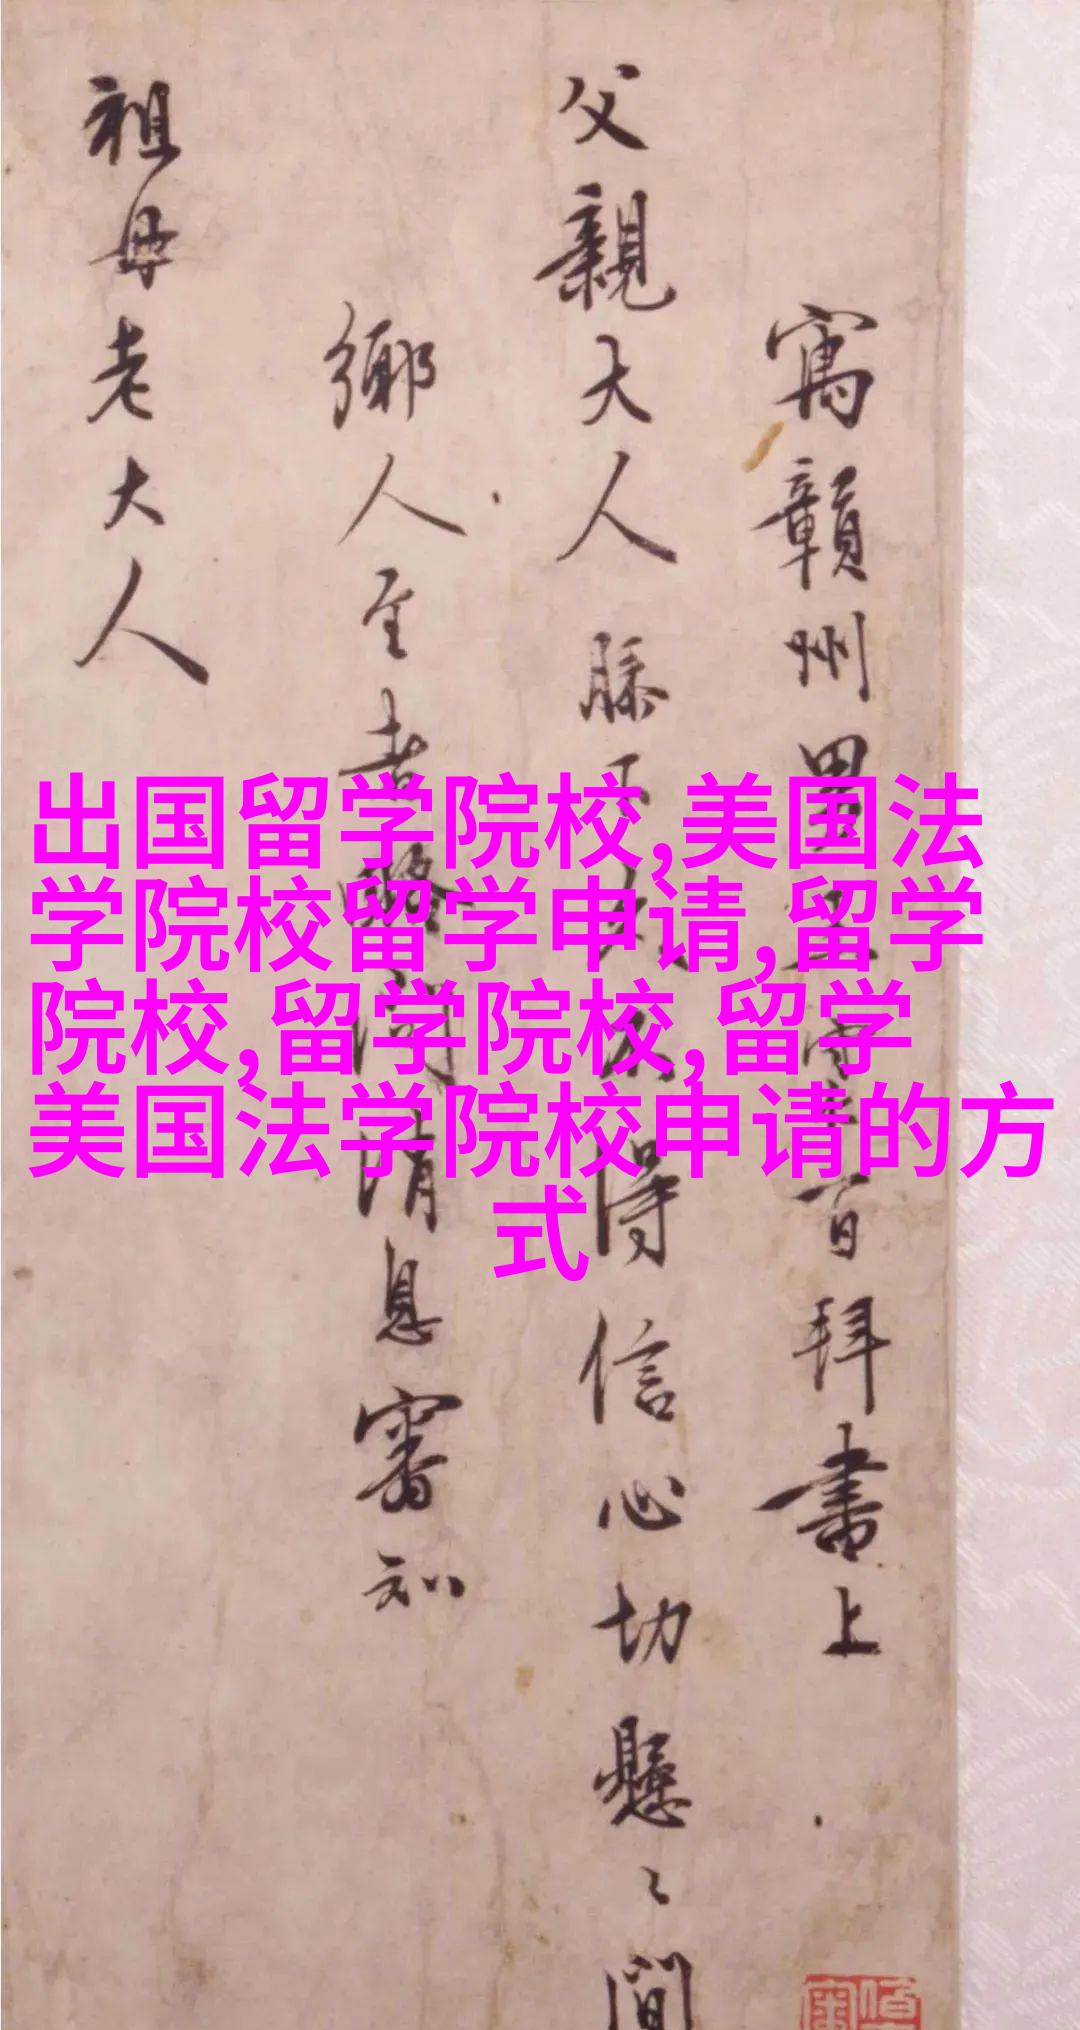 寓贛州男王守仁百拜書上
父親大人膝下久不得信心切懸〻間
鄉人至者略聞消息審知
祖母老大人
出国留学院校,美国法
学院校留学申请,留学
院校,留学院校,留学
美国法学院校申请的方
式